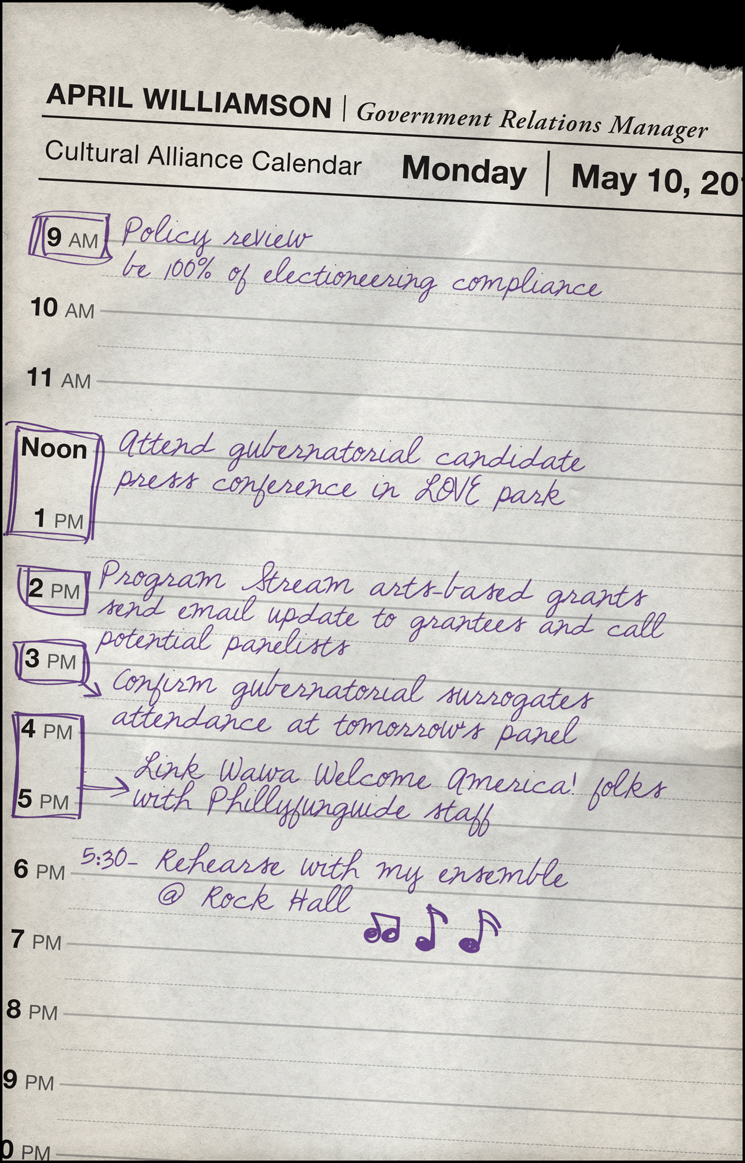 APRIL WILLIAMSON | Government Relations Manager
Cultural Alliance Calendar Monday | May 10, 20
9 AM Policy review
be 100% of electioneering compliance
10 AM
11 AM
Noon Attend gubernatorial candidate
press conference in LOVE park
1 PM
2 PM Program Stream arts-based grants
send email update to grantees and call
potential panelists
3 PM
Confirm gubernatorial surrogates
attendance at tomorrow's panel
4 PM
Link Wawa Welcome America! folks
5 PM with Phillyfunguide staff
6 PM 5:30- Rehearse with my ensemble
@ Rock Hall
7 PM
8 PM
9 PM
0 PM